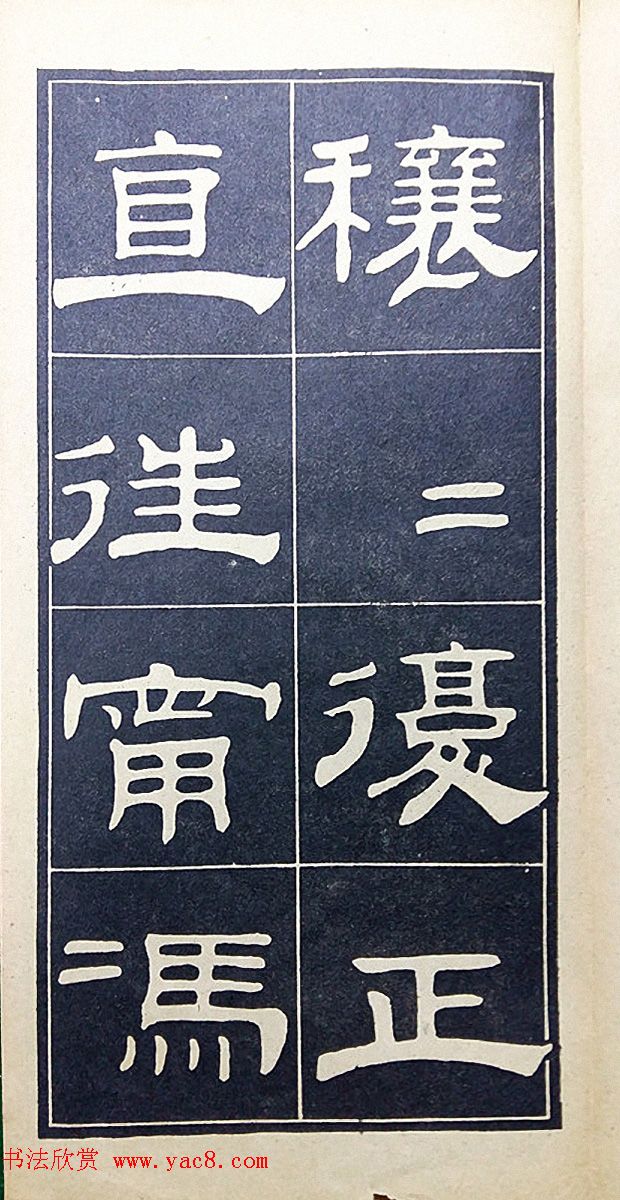 穰二復正
直往甯馮
书法欣赏 www.yac8.com